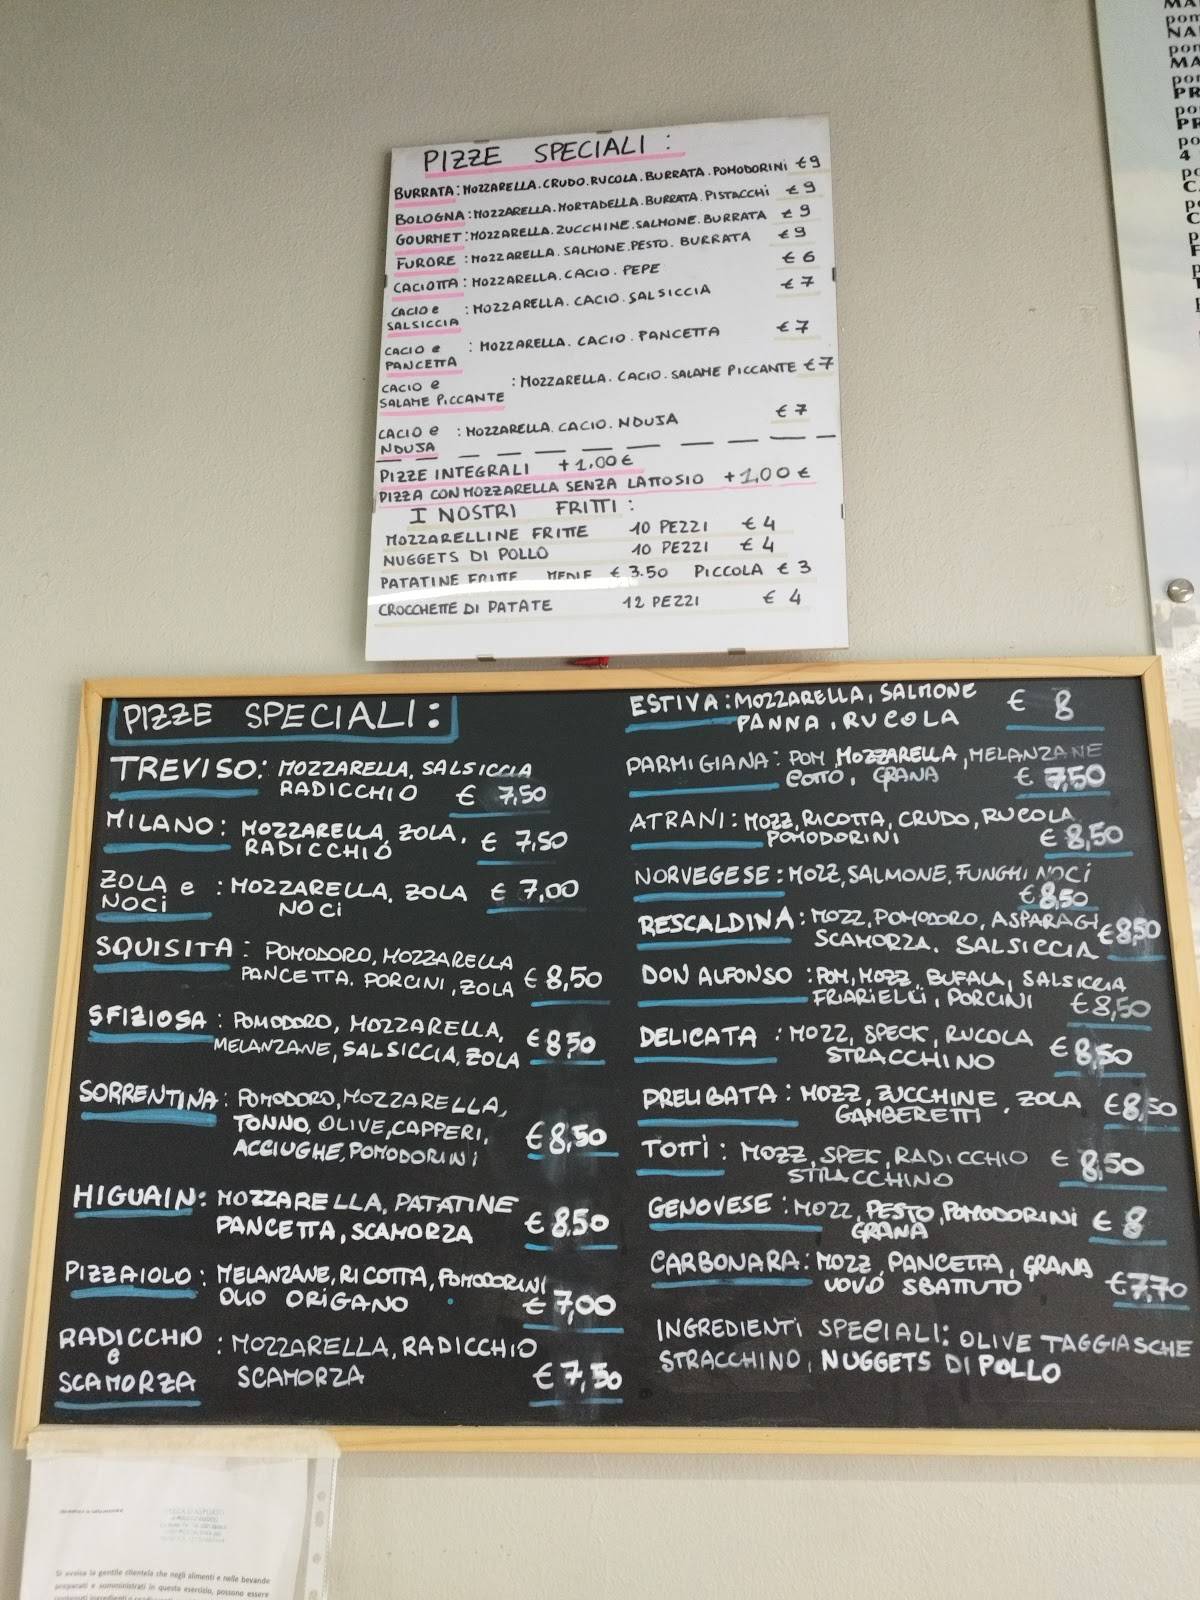 PIZZE SPECIALI :
BURRATA: MOZZARELLA.CRUDO.RUCOLA.BURRATA.POMODORINI €9
BOLOGNA: MOZZARELLA.MORTADELLA.BURRATA.PISTACCHI €9
GOURMET: MOZZARELLA.ZUCCHINE.SALMONE.BURRATA €9
FURORE : MOZZARELLA.SALMONE.PESTO.BURRATA €9
CACIOTTA : MOZZARELLA.CACIO.PEPE €6
CACIO e : MOZZARELLA.CACIO.SALSICCIA €7
SALSICCIA
CACIO e : MOZZARELLA.CACIO.PANCETTA €7
PANCETTA
CACIO e : MOZZARELLA.CACIO.SALAME PICCANTE €7
SALAME PICCANTE
CACIO e : MOZZARELLA.CACIO.NDUJA €7
NDUJA
PIZZE INTEGRALI +1,00€
PIZZA CON MOZZARELLA SENZA LATTOSIO +1,00€
I NOSTRI FRITTI :
MOZZARELLINE FRITTE 10 PEZZI €4
NUGGETS DI POLLO 10 PEZZI €4
PATATINE FRITTE MEDIE €3.50 PICCOLA €3
CROCCHETTE DI PATATE 12 PEZZI €4
PIZZE SPECIALI:
TREVISO: MOZZARELLA, SALSICCIA
RADICCHIO € 7,50
MILANO: MOZZARELLA, ZOLA, € 7,50
RADICCHIO
ZOLA e : MOZZARELLA, ZOLA € 7,00
NOCI NOCI
SQUISITA : POMODORO, MOZZARELLA
PANCETTA. PORCINI, ZOLA €8,50
SFIZIOSA : POMODORO, MOZZARELLA,
MELANZANE, SALSICCIA, ZOLA €8,50
SORRENTINA : POMODORO, MOZZARELLA,
TONNO, OLIVE, CAPPERI,
ACCIUGHE, POMODORINI €8,50
HIGUAIN: MOZZARELLA, PATATINE
PANCETTA, SCAMORZA €8.50
PIZZAIOLO : MELANZANE, RICOTTA, POMODORINI
OLIO ORIGANO €7,00
RADICCHIO : MOZZARELLA, RADICCHIO
e
SCAMORZA SCAMORZA €7,50
ESTIVA : MOZZARELLA, SALMONE
PANNA, RUCOLA € 8
PARMIGIANA : POM, MOZZARELLA, MELANZANE
COTTO, GRANA € 7,50
ATRANI : MOZZ, RICOTTA, CRUDO, RUCOLA
POMODORINI €8,50
NORVEGESE : MOZZ, SALMONE, FUNGHI NOCI
€8,50
RESCALDINA : MOZZ, POMODORO, ASPARAGI €8,50
SCAMORZA. SALSICCIA
DON ALFONSO : POM, MOZZ, BUFALA, SALSICCIA
FRIARIELLI, PORCINI €8,50
DELICATA : MOZZ, SPECK, RUCOLA
STRACCHINO €8,50
PRELIBATA : MOZZ, ZUCCHINE, ZOLA €8,50
GAMBERETTI
TOTTI : MOZZ, SPEK, RADICCHIO € 8,50
STRACCHINO
GENOVESE : MOZZ, PESTO, POMODORINI € 8
GRANA
CARBONARA : MOZZ, PANCETTA, GRANA
UOVO SBATTUTO €7,70
INGREDIENTI SPECIALI: OLIVE TAGGIASCHE
STRACCHINO, NUGGETS DI POLLO
Si avvisa la gentile clientela che negli alimenti e nelle bevande
preparati e somministrati in questo esercizio, possono essere